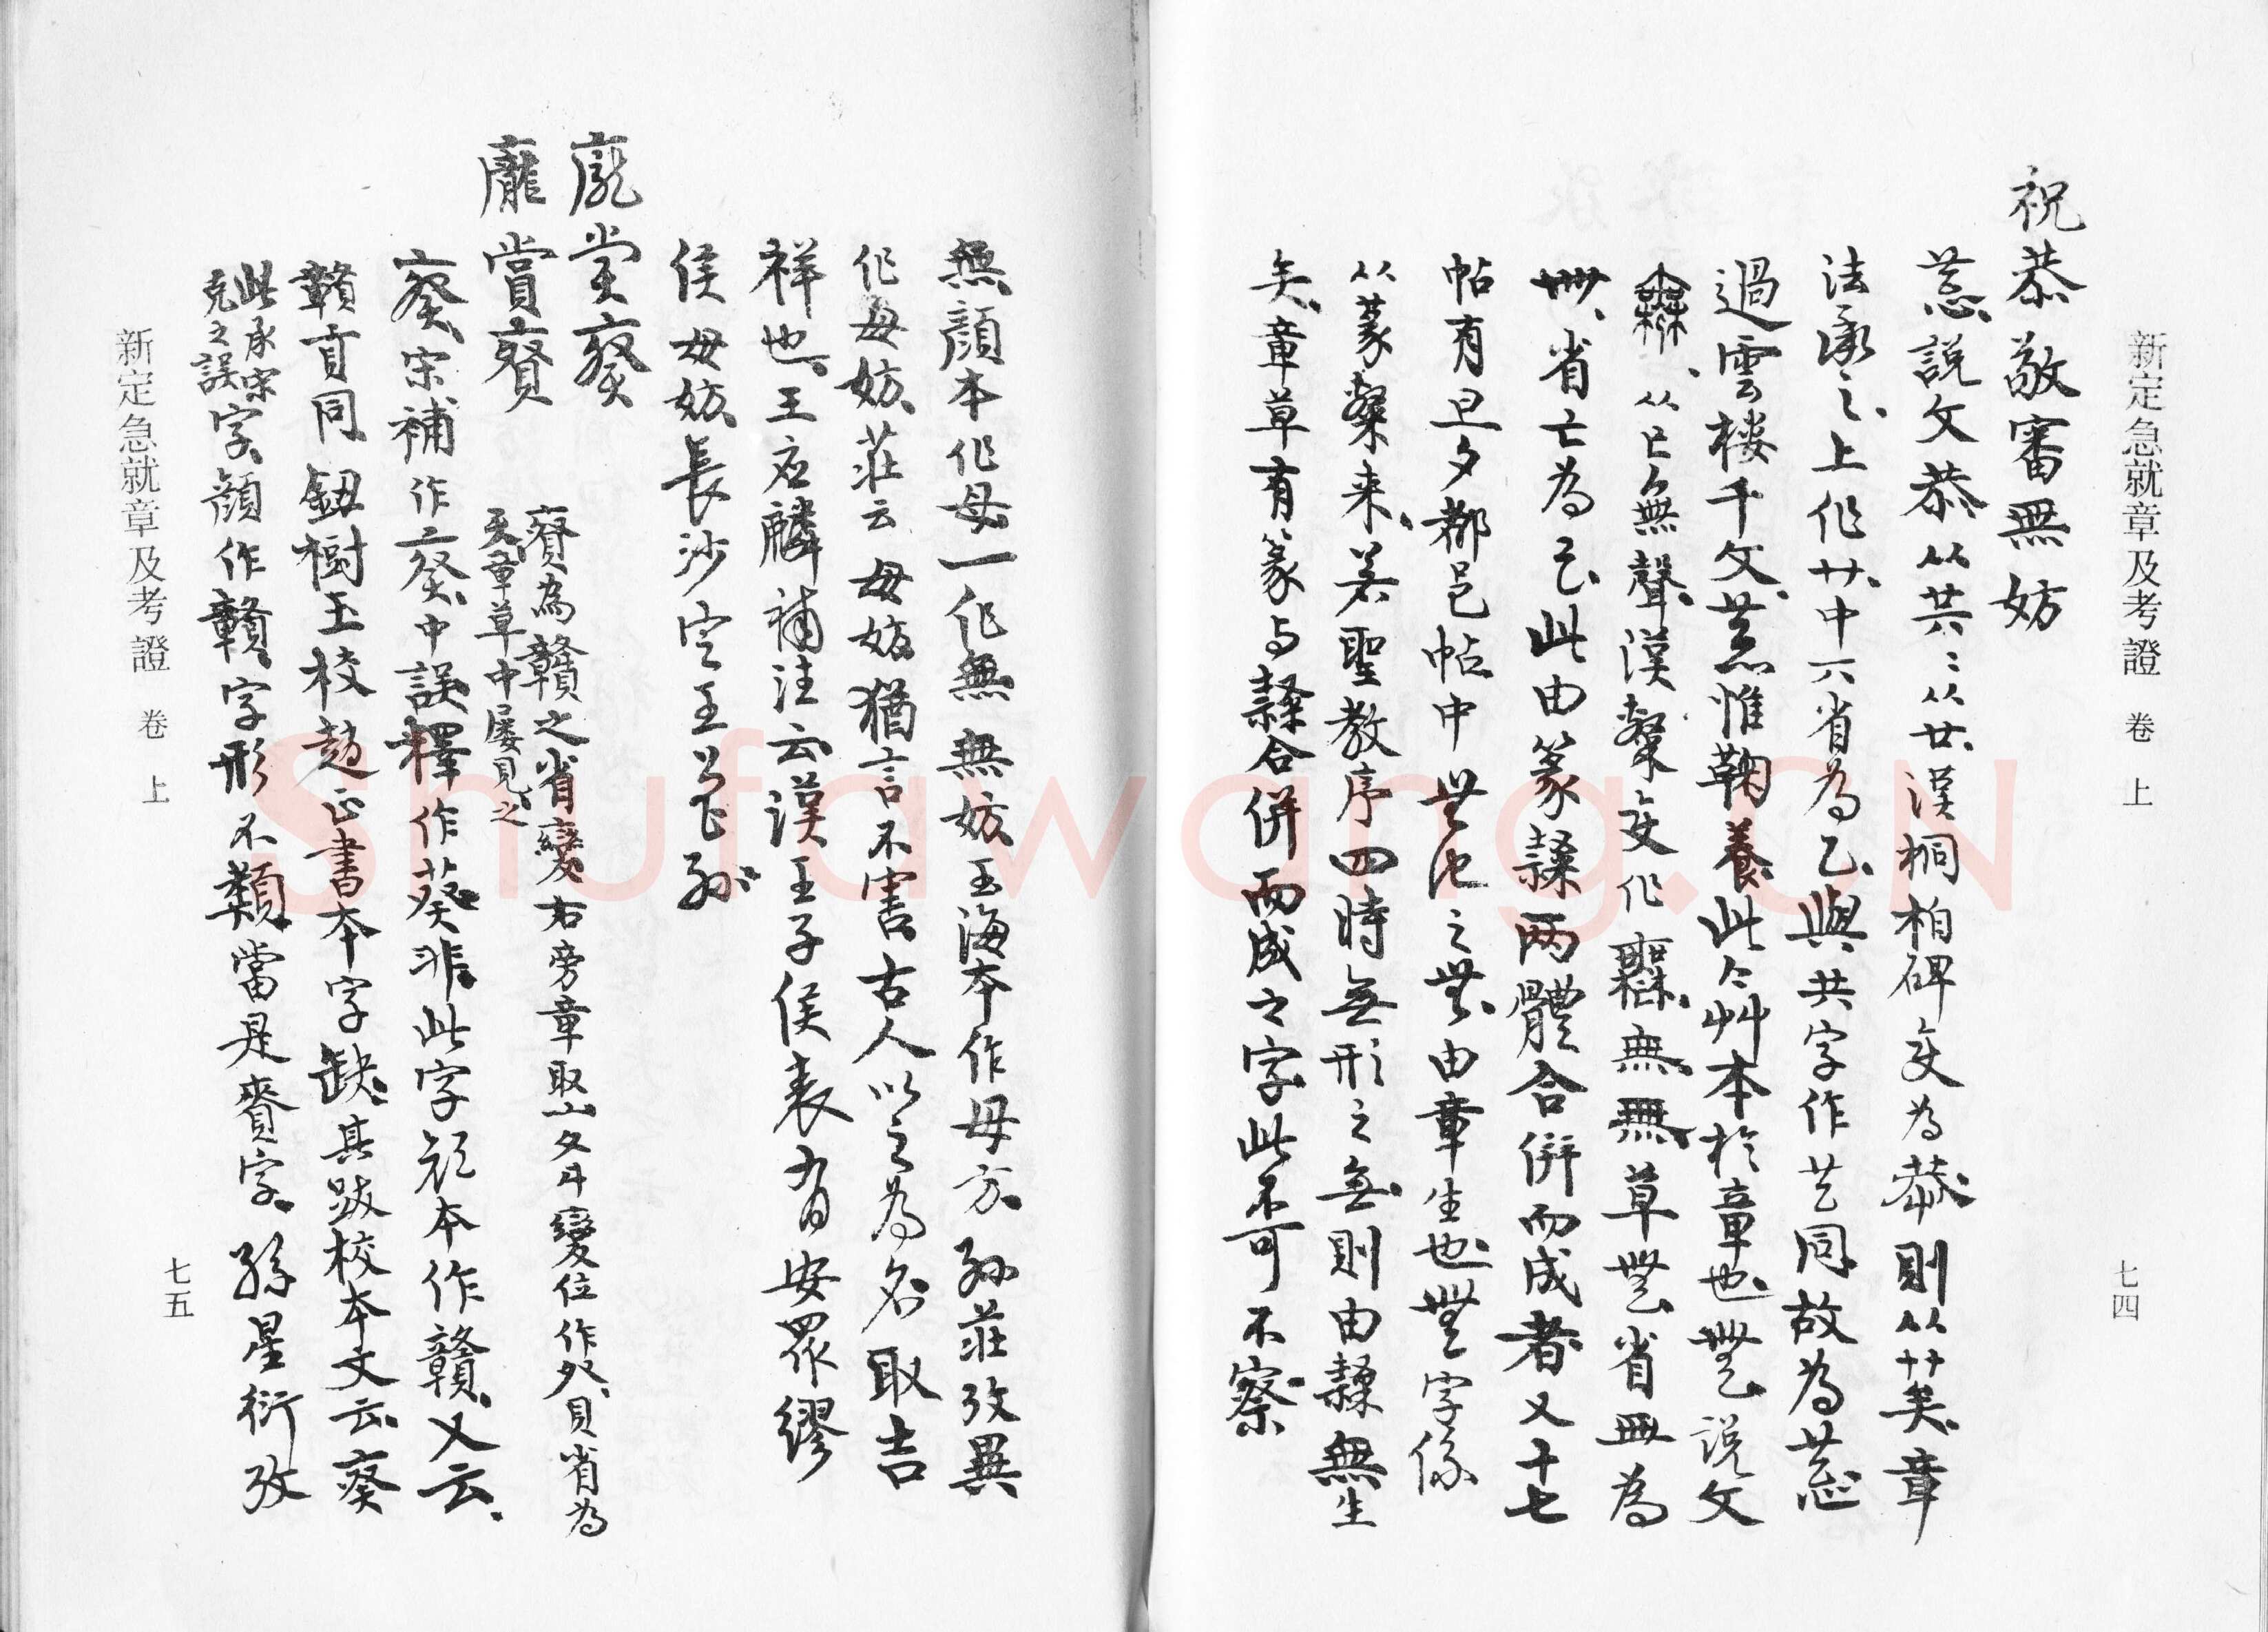 新定急就章及考證 卷上
七四
祝恭敬審無妨
恭、說文恭、从共、共从廿、漢桐柏碑变為恭、則从䒑矣、章
法承之、上作廿、中六省為乙、與共字作芝同、故為
過雲樓千文、恭惟鞠養、此今艸本於章也、無、說文
从亡無聲、漢槃变作、無、無草省皿為
卌、省亡為、此由篆隸兩體合併而成者、又十七
帖有旦夕都邑帖中、由章生也、字係
从篆槃来、若聖教序四時無形之無、則由隸無生
矣、章草有篆与隸合併而成之字、此不可不察
無、顏本作毋、一作無、無妨、玉海本作毋方、孫莊攷異
作毋妨、莊云毋妨猶言不害、古人以之為名、取吉
祥也、王應麟補注云、漢王子侯表有安眾繆
侯毋妨、長沙定王曾孫
龐賞
龐賞䝨
為贛之省變、右旁章取夂斗變位作、貝省為
天、章草中屢見之
宋補作、中誤釋作葵非、此字顏本作贛、又云、
贛貢同、鈕樹玉校趙正書本字缺、其跋校本文云
此承宋克之誤字、顏作贛、字形不類、當是賚字、孫星衍攷
新定急就章及考證 卷上
七五
Shufawang.CN